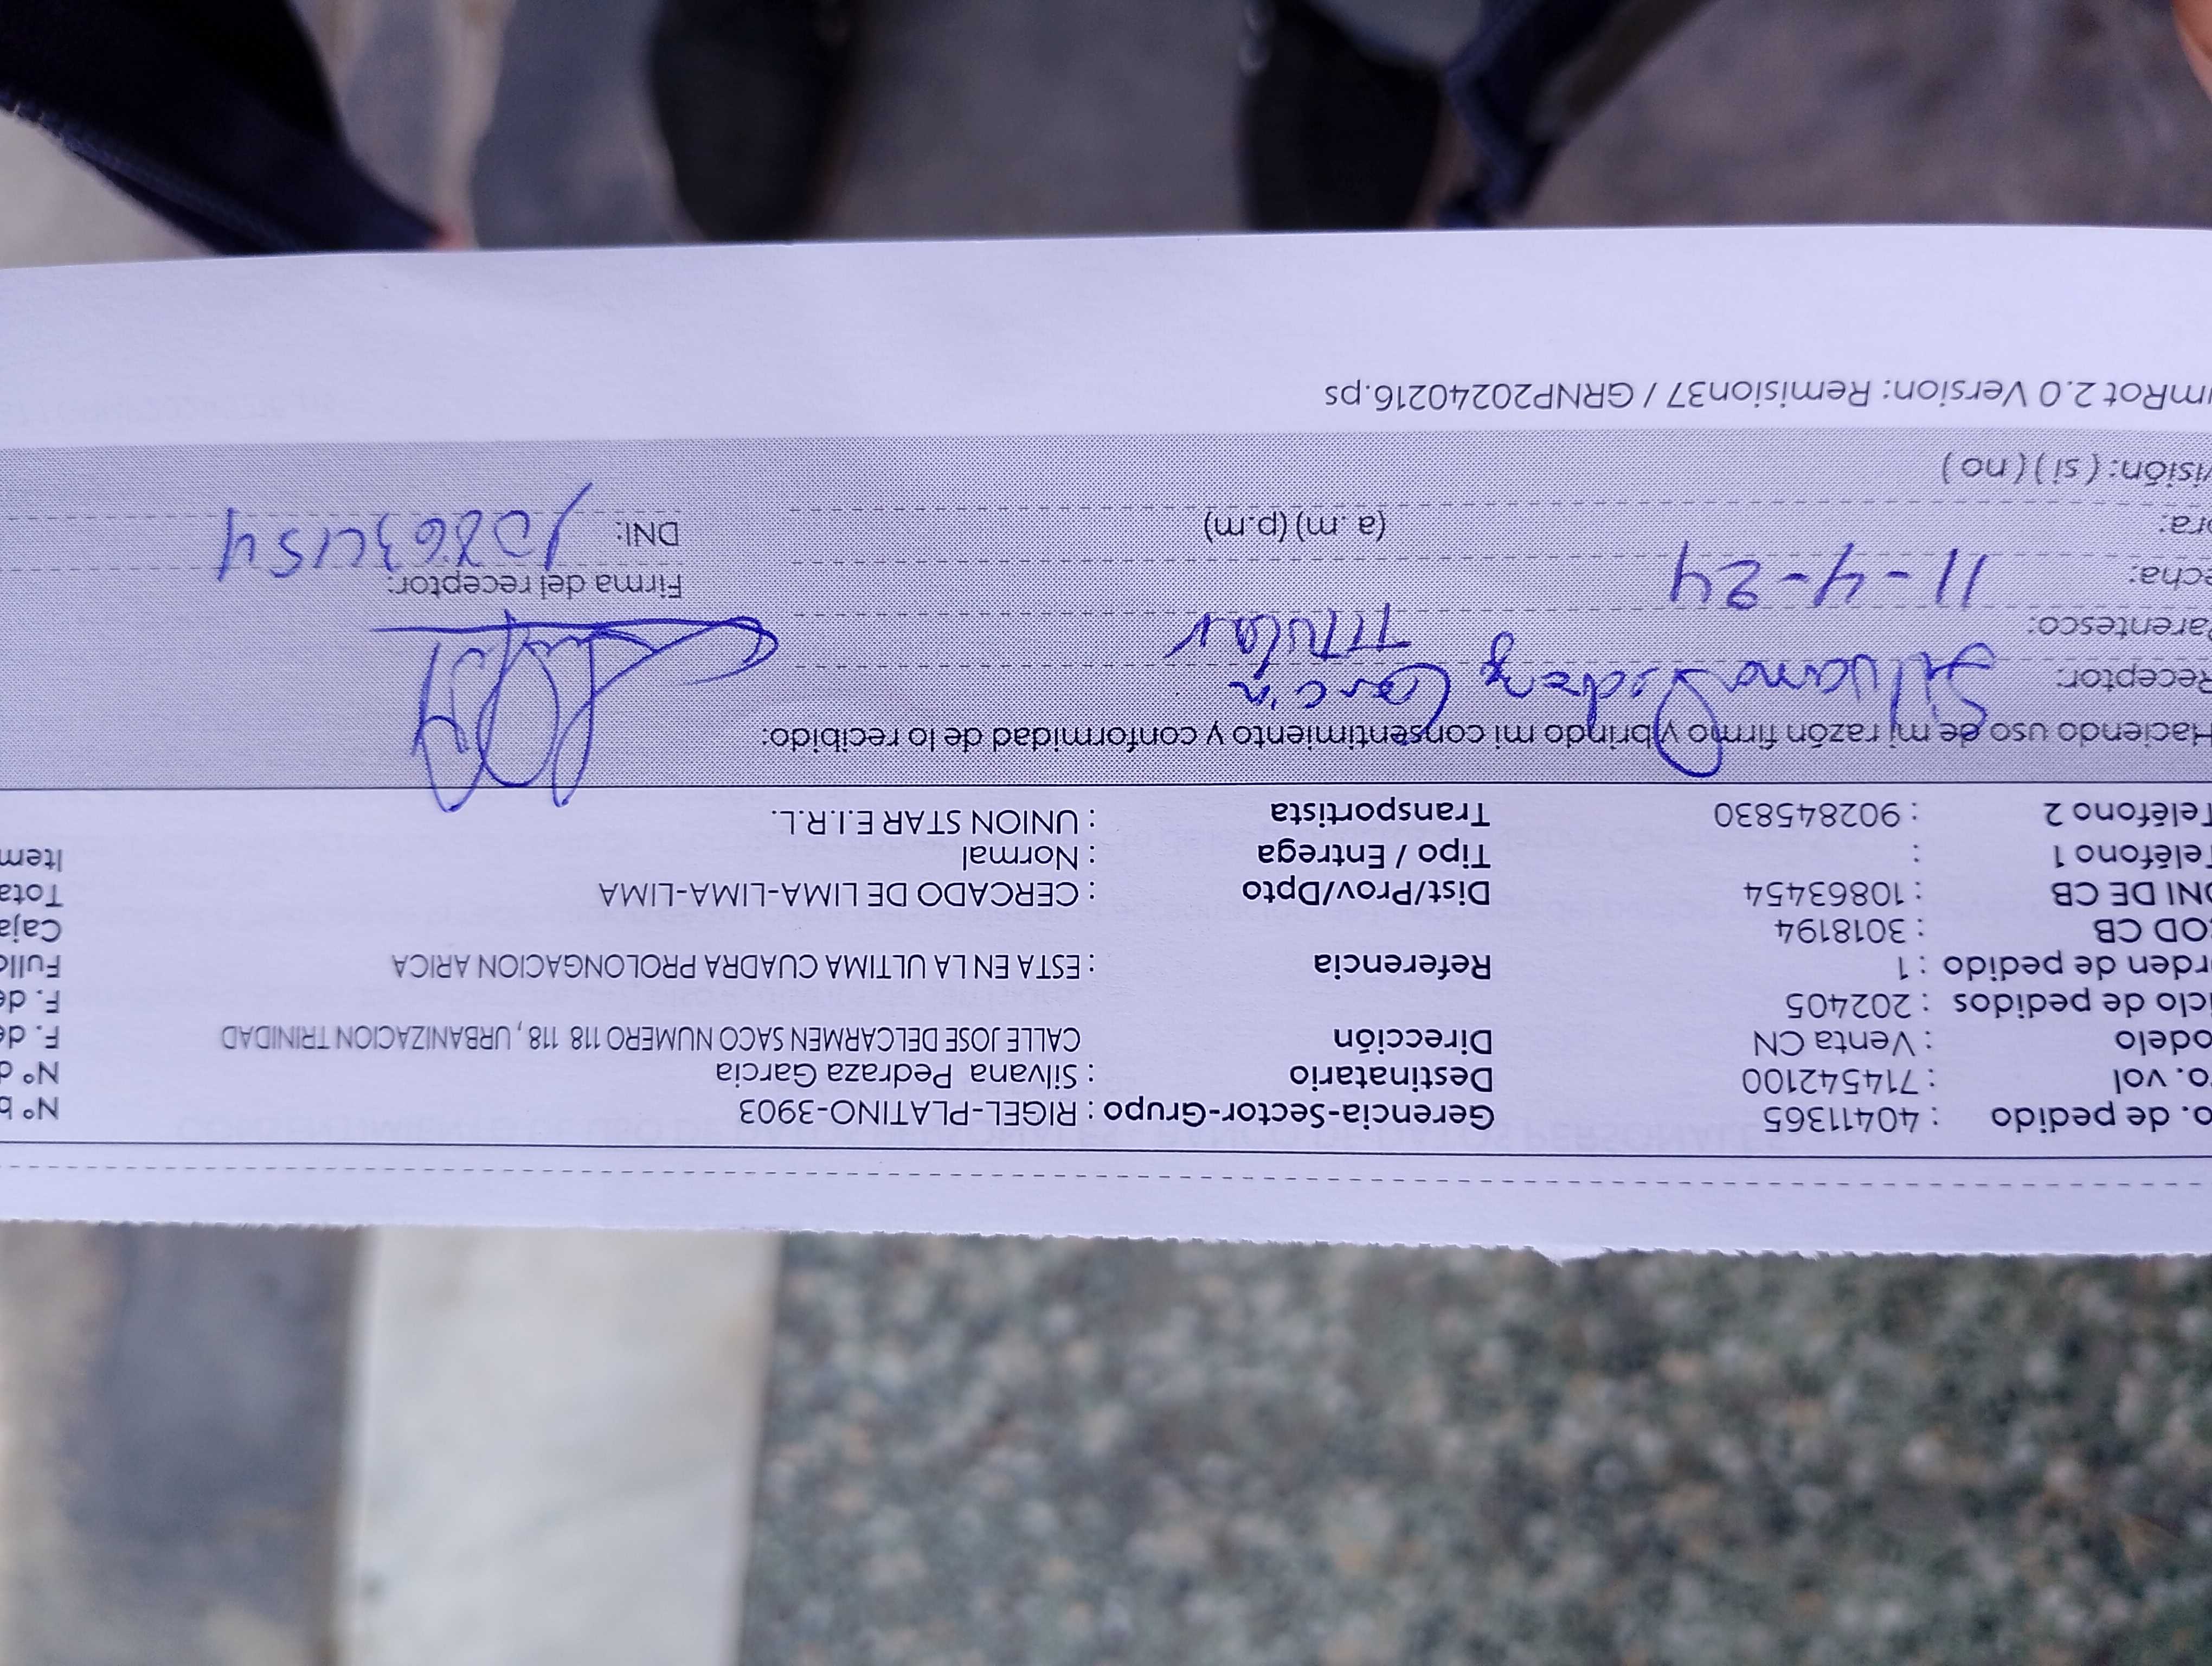 o. de pedido : 40411365 Gerencia-Sector-Grupo : RIGEL-PLATINO-3903 N° b
o. vol : 714542100 Destinatario : Silvana Pedraza Garcia N° d
odelo : Venta CN Dirección CALLE JOSE DELCARMEN SACO NUMERO 118 118 , URBANIZACION TRINIDAD F. de
iclo de pedidos : 202405 F. de
rden de pedido : 1 Referencia : ESTA EN LA ULTIMA CUADRA PROLONGACION ARICA Fullc
OD CB : 3018194 Caja
NI DE CB : 10863454 Dist/Prov/Dpto : CERCADO DE LIMA-LIMA-LIMA Tota
eléfono 1 : Tipo / Entrega : Normal Item
Teléfono 2 : 902845830 Transportista : UNION STAR E.I.R.L.
Haciendo uso de mi razón firmo y brindo mi consentimiento y conformidad de lo recibido:
Receptor: Silvana Pedraza Garcia
Parentesco: Titular
echa: 11-4-24 Firma del receptor:
ora: (a .m) (p.m) DNI:
visión: ( si ) ( no )
mRot 2.0 Version: Remision37 / GRNP20240216.ps